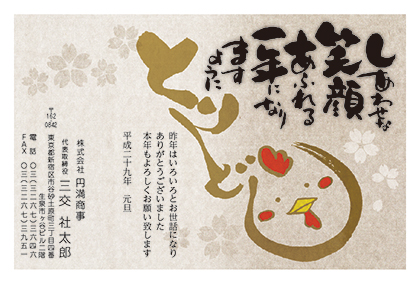 しあわせな
笑顔
あふれる
一年になり
ます
ように
とりどし
昨年はいろいろとお世話になり
ありがとうございました
本年もよろしくお願い致します
平成二十九年　元旦
株式会社　円満商事
代表取締役　三交　社太郎
〒162
0842
東京都新宿区市谷砂土原町三丁目四番
生泉市ヶ谷ビル二階
電話　〇三（三二六七）三六四六
FAX　〇三（三二六七）三九五一